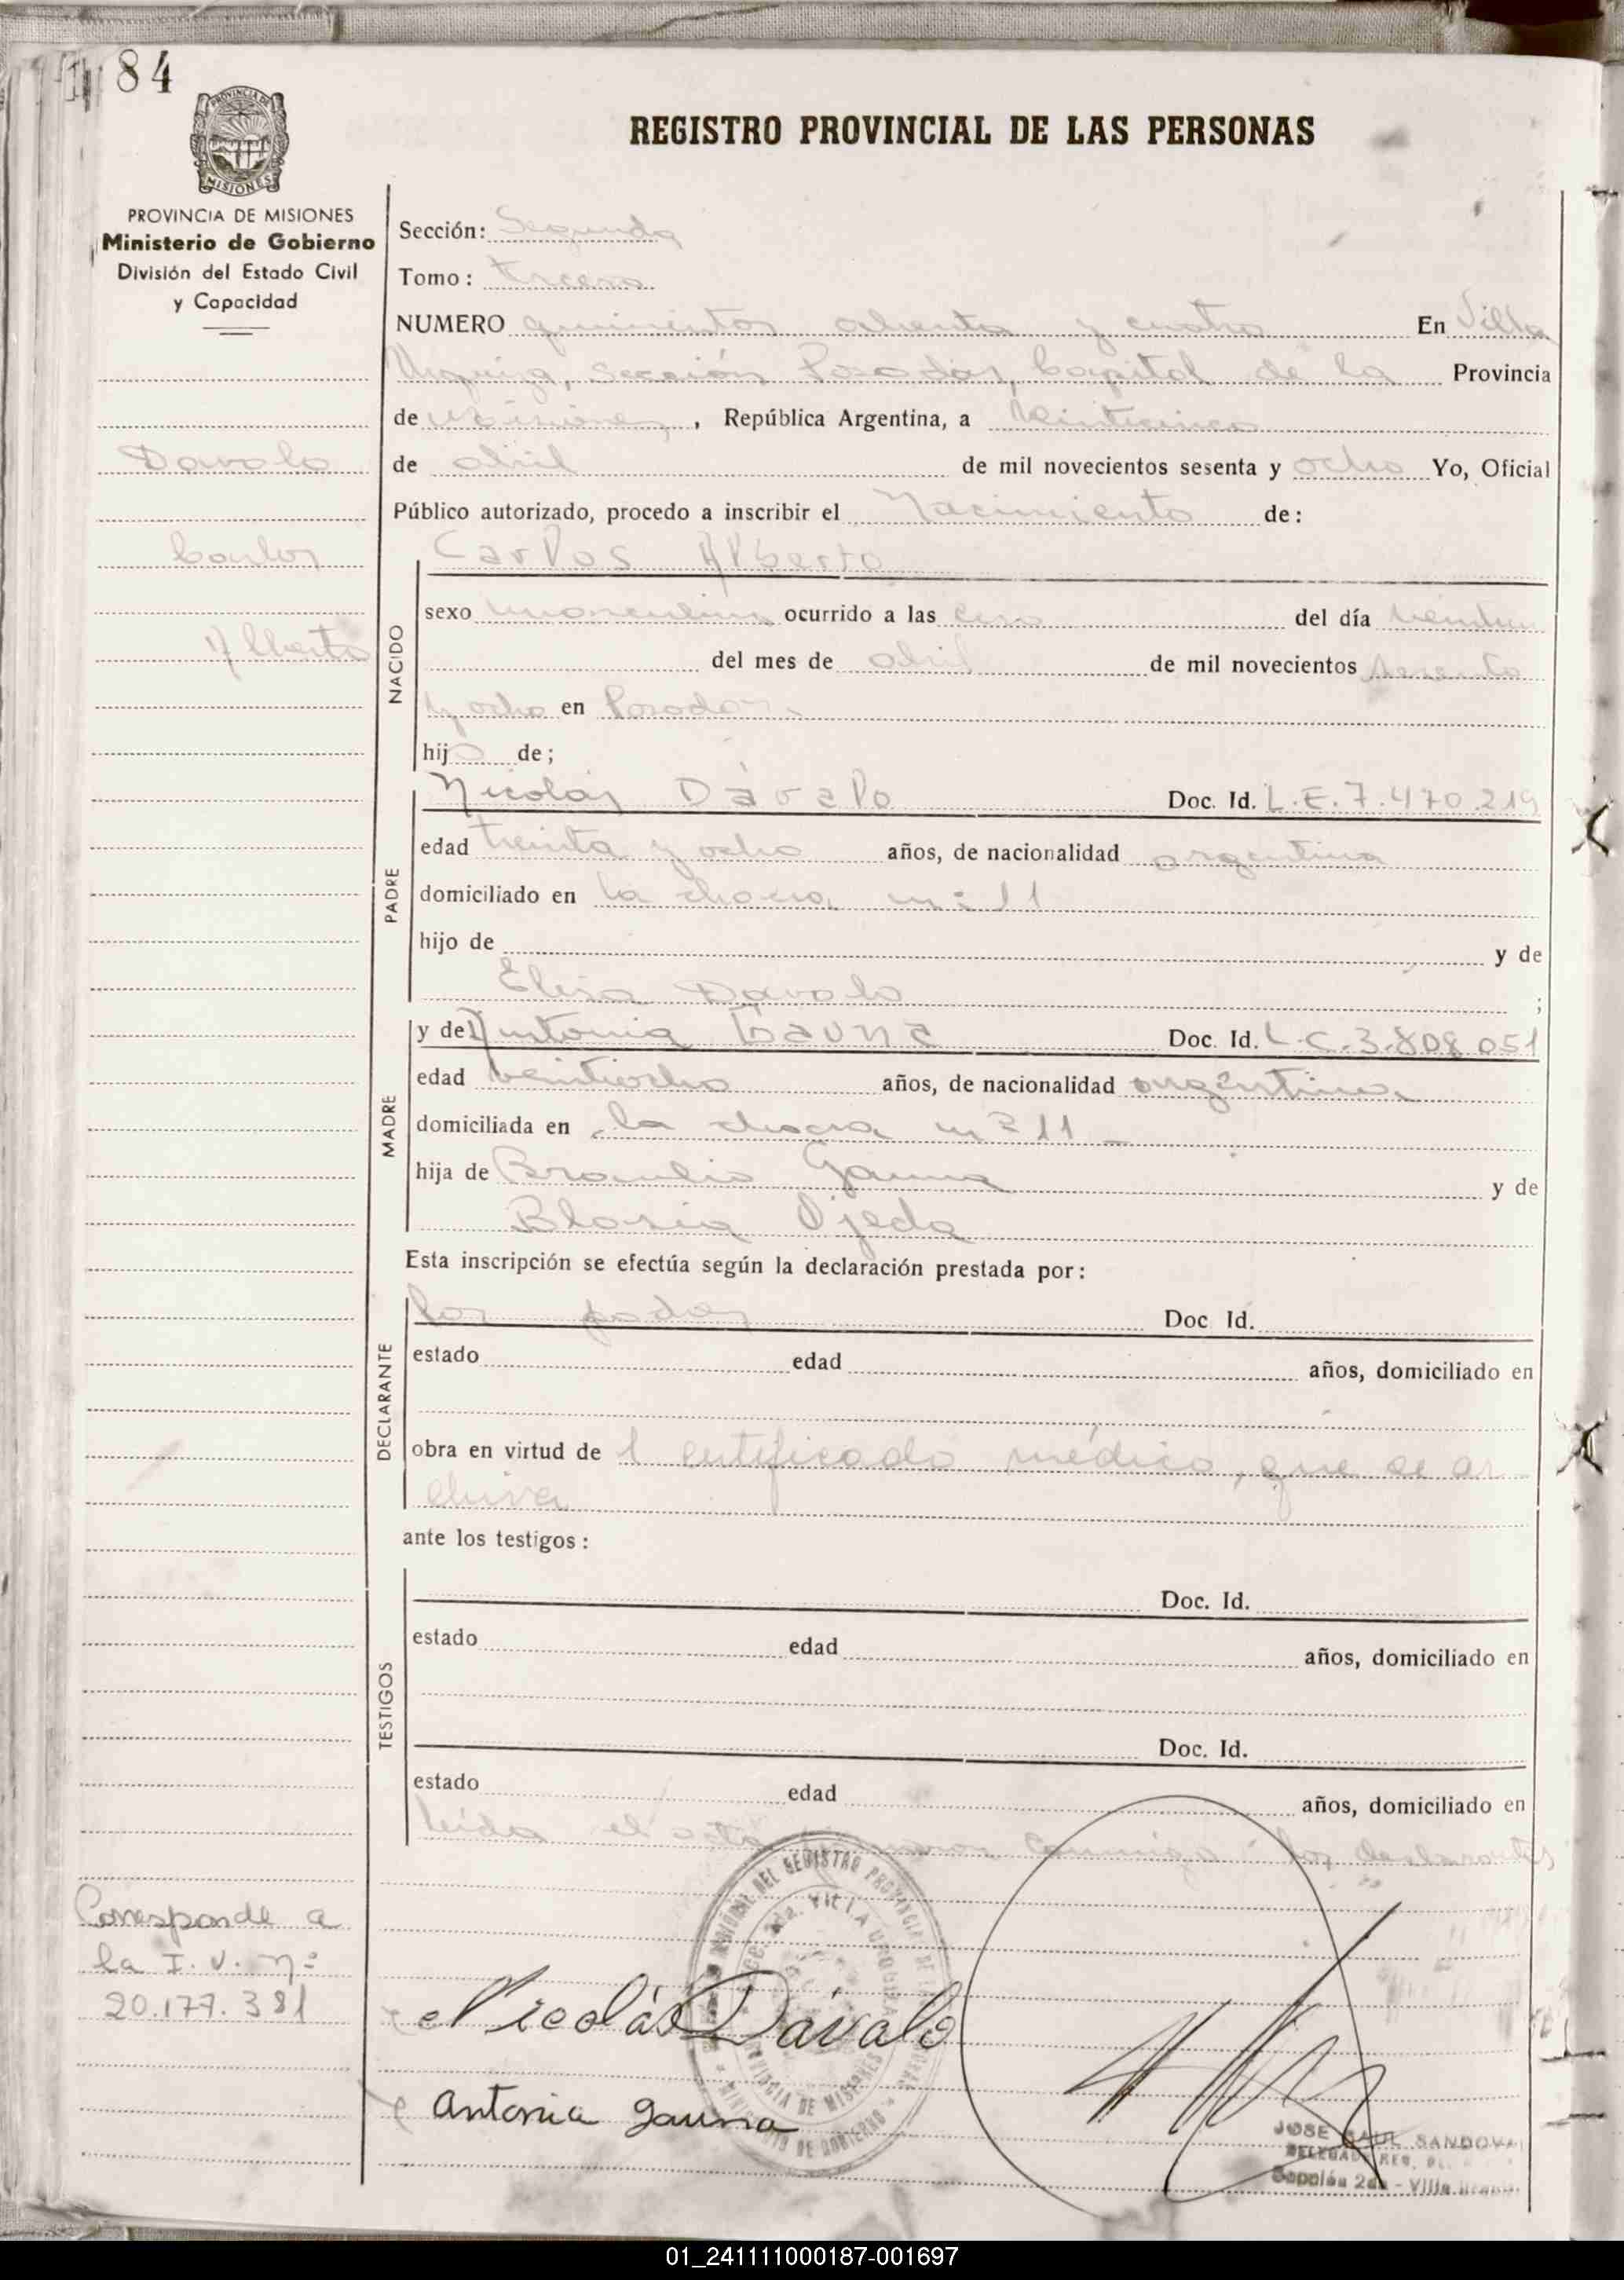 84
PROVINCIA DE
MISIONES
REGISTRO PROVINCIAL DE LAS PERSONAS
PROVINCIA DE MISIONES
Ministerio de Gobierno
División del Estado Civil
y Capacidad
Davalo
Carlos
Alberto
Sección: Segunda
Tomo: tercero
NUMERO quinientos ochenta y cuatro En Villa
Urquiza, sección Posadas, Capital de la Provincia
de Misiones, República Argentina, a veinticinco
de abril de mil novecientos sesenta y ocho Yo, Oficial
Público autorizado, procedo a inscribir el Nacimiento de:
Carlos Alberto
NACIDO
sexo masculino ocurrido a las cero del día
del mes de abril de mil novecientos sesenta
y ocho en Posadas
hijo de;
PADRE
Nicolás Dávalo Doc. Id. L.E.7.470.219
edad treinta y ocho años, de nacionalidad argentina
domiciliado en la chacra nº 11
hijo de y de
Elisa Davalo ;
MADRE
y de Antonia Gauna Doc. Id. L.C.3.808.051
edad veintiocho años, de nacionalidad argentina
domiciliada en la chacra nº 11
hija de Braulio Gauna y de
Blasia Ojeda
Esta inscripción se efectúa según la declaración prestada por:
DECLARANTE
los padres Doc Id.
estado edad años, domiciliado en
obra en virtud de 1 certificado médico, que se ar
chiva
ante los testigos:
TESTIGOS
Doc. Id.
estado edad años, domiciliado en
Doc. Id.
estado edad años, domiciliado en
Leída el acta conmigo los declarantes
Corresponde a
la I. V. Nº
20.177.381
Nicolás Dávalo
Antonia Gauna
PROVINCIA DE MISIONES
MINISTERIO DE GOBIERNO
JOSE RAUL SANDOVAL
Sección 2da - Villa Urquiza
01_241111000187-001697